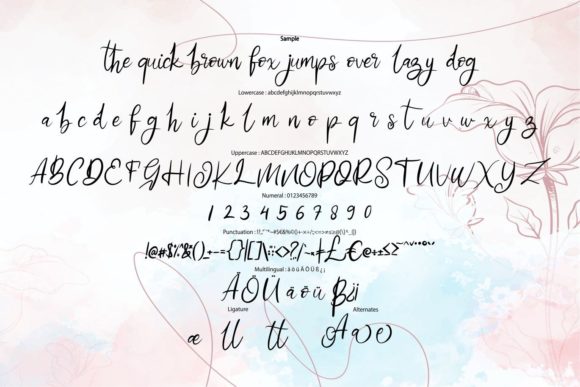 Sample
the quick brown fox jumps over lazy dog
Lowercase : abcdefghijklmnopqrstuvwxyz
a b c d e f g h i j k l m n o p q r s t u v w x y z
Uppercase : ABCDEFGHIJKLMNOPQRSTUVWXYZ
ABCDEFGHIJKLMNOPQRSTUVWXYZ
Numeral : 0123456789
1 2 3 4 5 6 7 8 9 0
Punctuation :
Multilingual : ä ö ü Ä Ö Ü ß ¿ ¡
ÄÖÜ äöü ß¿¡
Ligature Alternates
æ ll tt